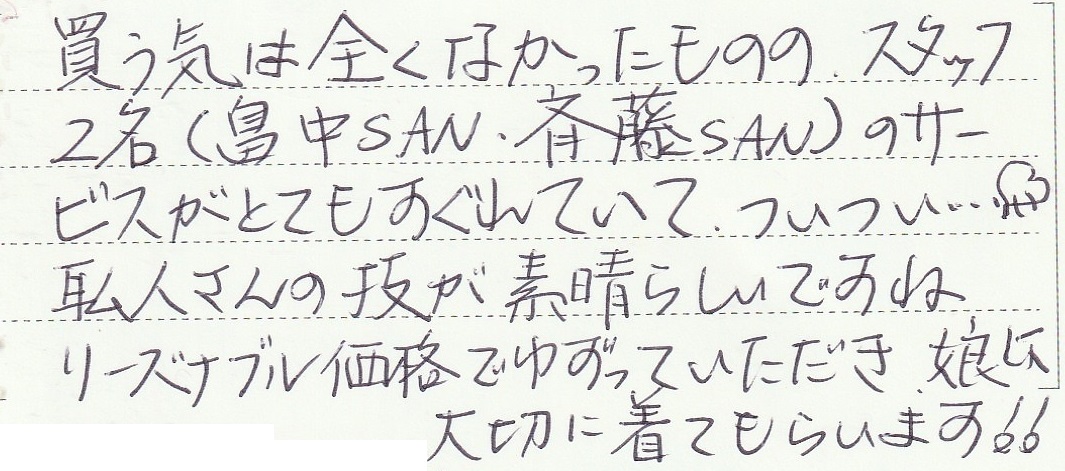 買う気は全くなかったものの、スタッフ
2名(畠中SAN・斉藤SAN)のサー
ビスがとてもすぐれていて、ついつい…
私人さんの技が素晴らしいですね
リーズナブル価格でゆずっていただき、娘に
大切に着てもらいます!!